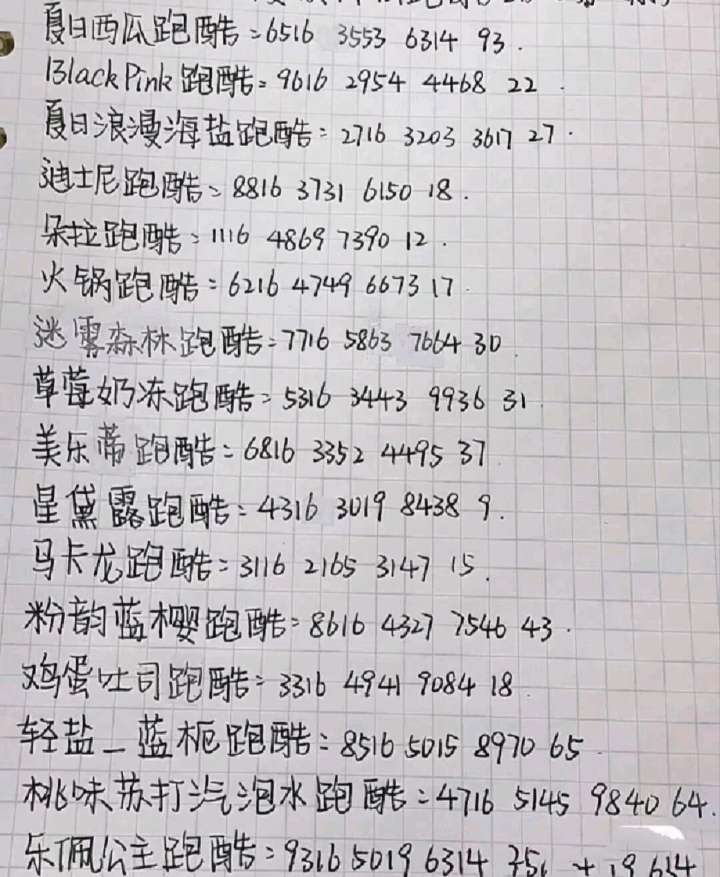 夏日西瓜跑酷:6516 3553 6314 93.
BlackPink跑酷:9616 2954 4468 22.
夏日浪漫海盐跑酷:2716 3203 3617 27.
迪士尼跑酷:8816 3731 6150 18.
朵拉跑酷:1116 4869 7390 12.
火锅跑酷:6216 4749 6673 17
迷雾森林跑酷:7716 5863 7664 30
草莓奶冻跑酷:5316 3443 9936 31
美乐蒂跑酷:6816 3352 4495 37
星黛露跑酷:4316 3019 8438 9.
马卡龙跑酷:3116 2165 3147 15.
粉韵蓝樱跑酷:8616 4327 7546 43.
鸡蛋吐司跑酷:3316 4941 9084 18
轻盐_蓝栀跑酷:8516 5015 8970 65
桃味苏打汽泡水跑酷:4716 5145 9840 64.
乐佩公主跑酷:9316 5019 6314